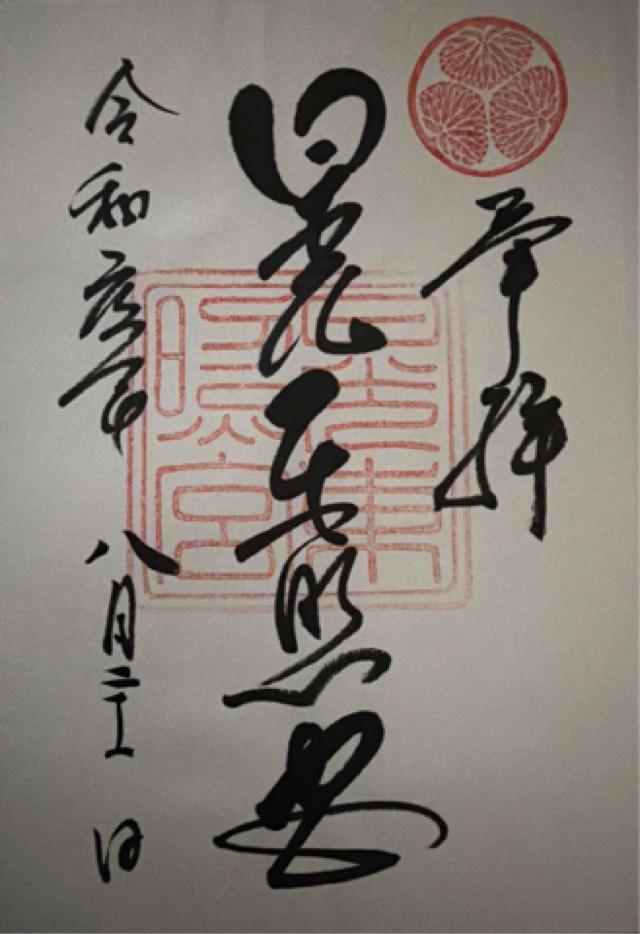 奉拝
日光東照宮
令和年八月二十一日
日光東照宮